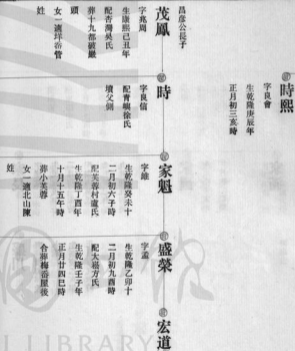 時熙
字良會
生乾隆庚辰年
正月初三亥時
昌彥公長子
茂鳳
字兆周
生康熙己丑年
配杏灣吳氏
葬十九都破巖
頭
女一適坪峇管
姓
時
字良信
配青嶼徐氏
墳父側
家魁
字維
生乾隆癸未十
二月初六子時
配芙蓉村盧氏
生乾隆丁酉年
十月十五午時
葬小芙蓉
女一適北山陳
姓
盛榮
字孟
生乾隆乙卯十
二月初九酉時
配大崧方氏
生乾隆壬子年
正月廿四巳時
合葬梅峇屋後
宏道
L LIBRARY